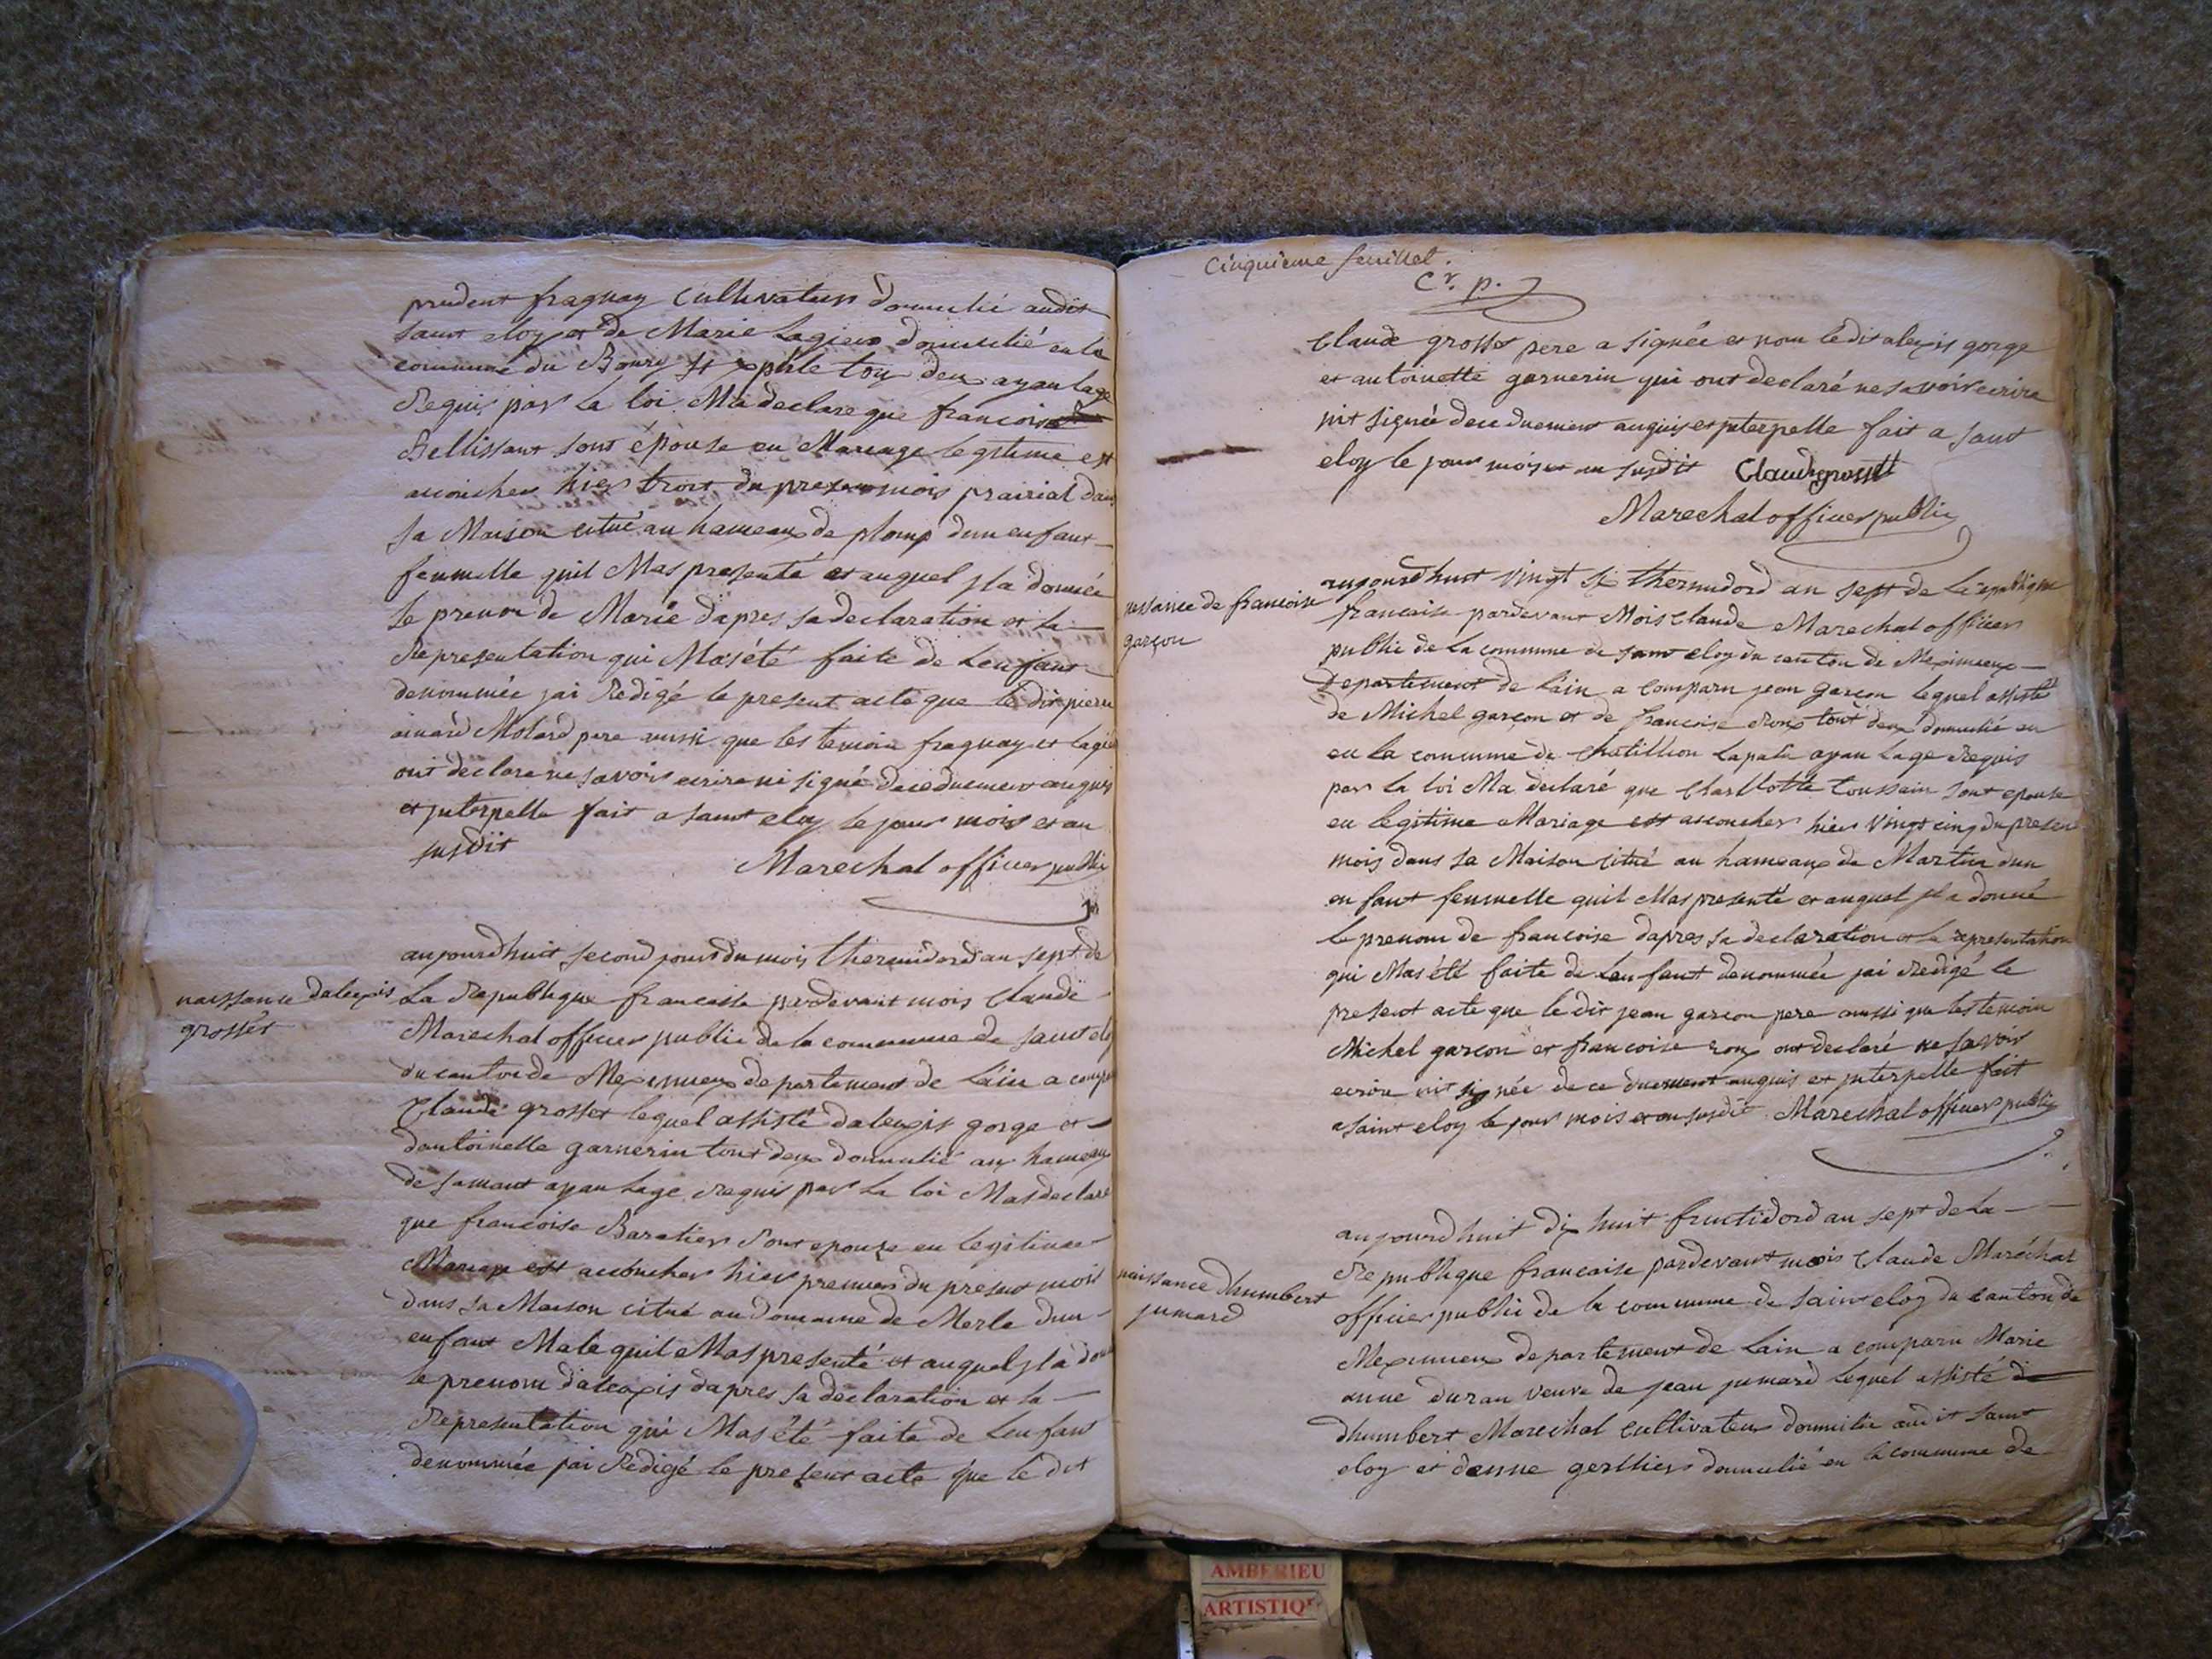 prudent fraguay Cultivateur domicilié audit
saint eloy et de Marie Lagier domicilié en la
commune du Bourg St xphle touɟ deux ayan lage
Requis par la loi Ma declare que francoise
Bellissant sont épouse en Mariage legitime est
accoucher hier trois du present mois prairial dans
sa Maison citué au hameaux de plomp dun enfant
femmelle quil Mas presenté et auquel jl a donnée
le prenom de Marie dapres sa declaration et la
Representation qui Mas été faite de Lenfant
denommée jai Redigé le present acte que le dit pierre
ainard Molard pere aussi que les temoins fraguay et lagier
ont declare ne savoir ecrire ni signé de ce duement anquis
et jnterpelle fait a saint eloy le jour mois et an
susdit
Marechal officier public
naissance dalexis
grosset
aujourdhuit second jour du mois thermidord an sept de
La Republique francaise pardevant mois Claude
Marechal officier public de la commune de saint eloy
du canton de Meximieux departement de Lain a comparu
Claude grosset lequel assisté dalexis gorge et
dantoinette garnerin tout deux domicilié au hameaux
de samant ayan lage Requis par la loi Mas declaré
que francoise Baratier sont epouse en legitime
Mariage est accoucher hier premier du present mois
dans sa Maison citué au domaine de Merle dun
enfant Male quil Mas presenté et auquel jl a donné
le prenom dalexis dapres sa declaration et la
Representation qui Mas été faite de Lenfant
denommée jai Redigé le present acte que le dit
Cinquieme feuillet.
Cr. p.
Claude grosset pere a signée et non le dit alexis gorge
et antoinette garnerin qui ont declaré ne savoir ecrire
nit signée de ce duement anquis et jnterpelle fait a saint
eloy le jour mois et an susdit Claude grosset
Marechal officier public
naissance de francoise
garçon
aujourdhuit vingt six thermidord an sept de la republique
francaise pardevant Mois Claude Marechal officier
public de la commune de saint eloy du canton de Meximieux
Departement de Lain a comparu jean garcon lequel assisté
de Michel garçon et de francoise Roux tout deux domicilié en
en la commune de chatillion Lapalu ayan lage Requis
par la loi Ma declaré que Charllotte toussain sont epouse
en legitime Mariage est accoucher hier vingt cinq du present
mois dans sa Maison citué au hameaux de Martin dun
enfant femmelle quil Mas presenté et auquel jl a donné
le prenom de francoise dapres sa declaration et la representation
qui Mas été faite de Lenfant denommée jai Redigé le
present acte que le dit jean garcon pere aussi que les temoin
Michel garcon et francoise roux ont declaré ne savoir
ecrire nit signée de ce duement anquis et jnterpelle fait
a saint eloy le jour mois et an susdit Marechal officier public
naissance dhumbert
jumard
aujourdhuit dix huit fructidord an sept de La
Republique francaise pardevant mois Claude Maréchal
officier public de la commune de saint eloy du canton de
Meximieux departement de Lain a comparu Marie
anne duran veuve de jean jumard lequel assisté de
dhumbert Marechal cultivateur domicilie audit saint
eloy et danne gerllier domicilié en la commune de
AMBERIEU
ARTISTIQ